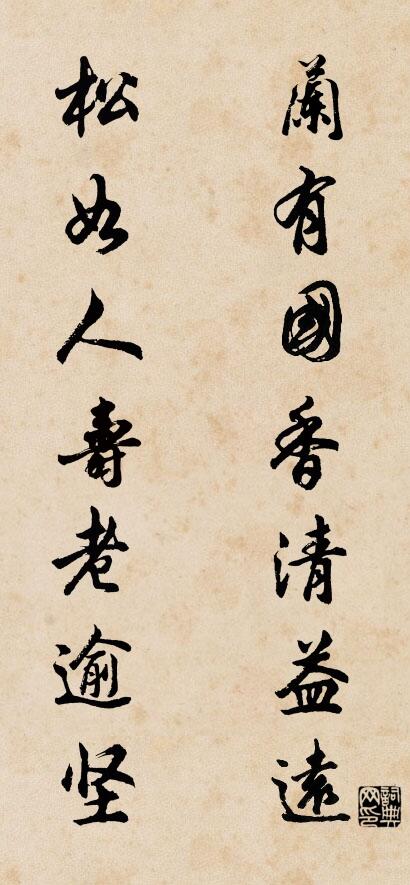 蘭有國香清益遠
松如人壽老逾坚
詞典网印